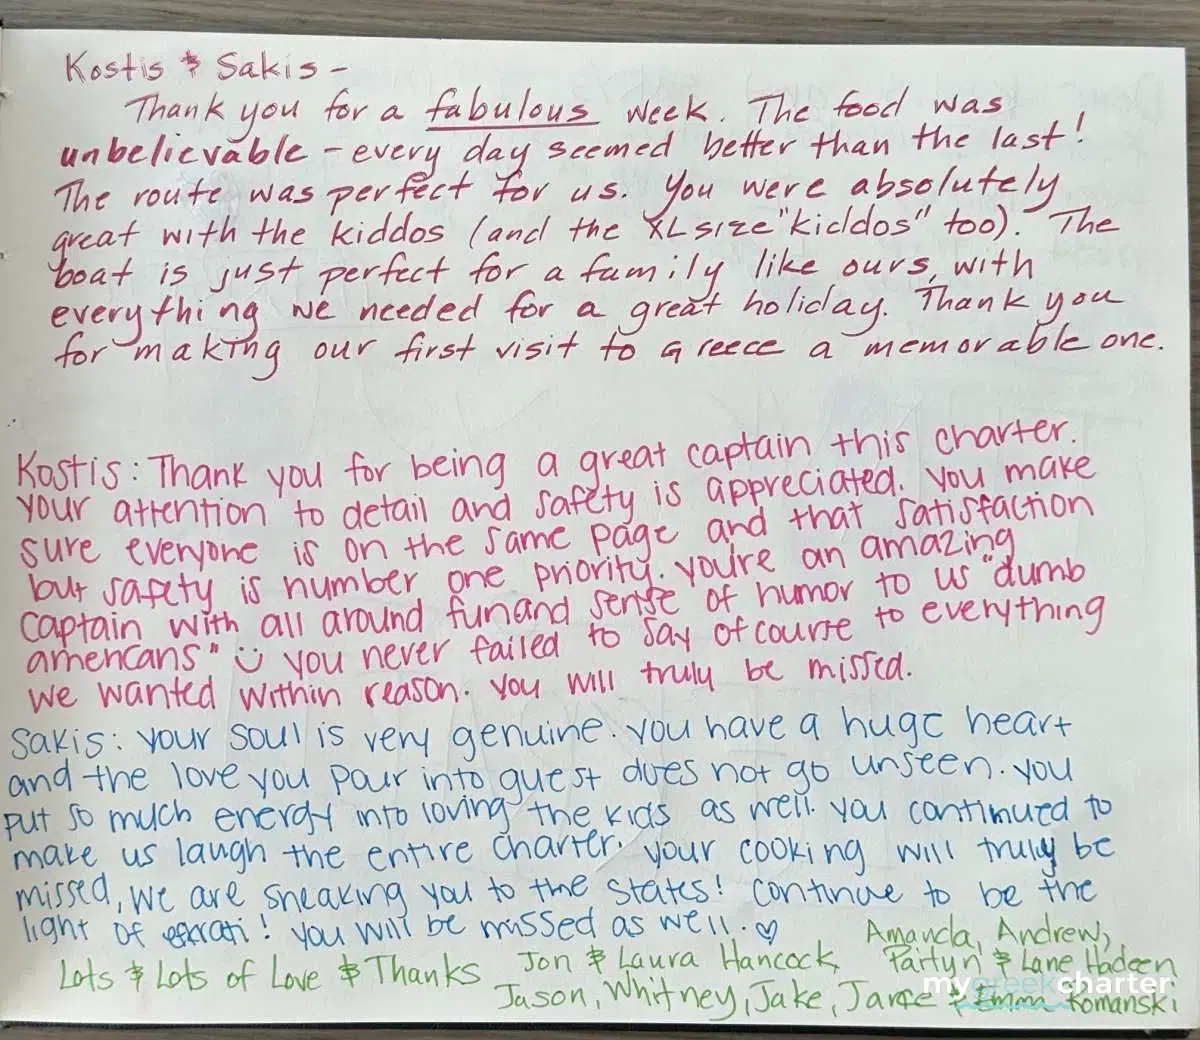 Kostis & Sakis -
Thank you for a fabulous week. The food was
unbelievable - every day seemed better than the last!
The route was perfect for us. You were absolutely
great with the kiddos (and the XL size "kiddos" too). The
boat is just perfect for a family like ours, with
everything we needed for a great holiday. Thank you
for making our first visit to Greece a memorable one.
Kostis: Thank you for being a great captain this charter.
your attention to detail and safety is appreciated. You make
sure everyone is on the same page and that satisfaction
but safety is number one priority. you're an amazing
captain with all around fun and sense of humor to us "dumb
americans" ☺ you never failed to say of course to everything
we wanted within reason. you will truly be missed.
Sakis: your soul is very genuine. you have a huge heart
and the love you pour into guest does not go unseen. you
put so much energy into loving the kids as well. you continued to
make us laugh the entire charter. your cooking will truly be
missed, we are sneaking you to the states! continue to be the
light of ! you will be missed as well. ♡
Lots & Lots of Love & Thanks
Jon & Laura Hancock
Amanda, Andrew,
& Lane Hadeen
Jason, Whitney, Jake, & Romanski
mygreekcharter